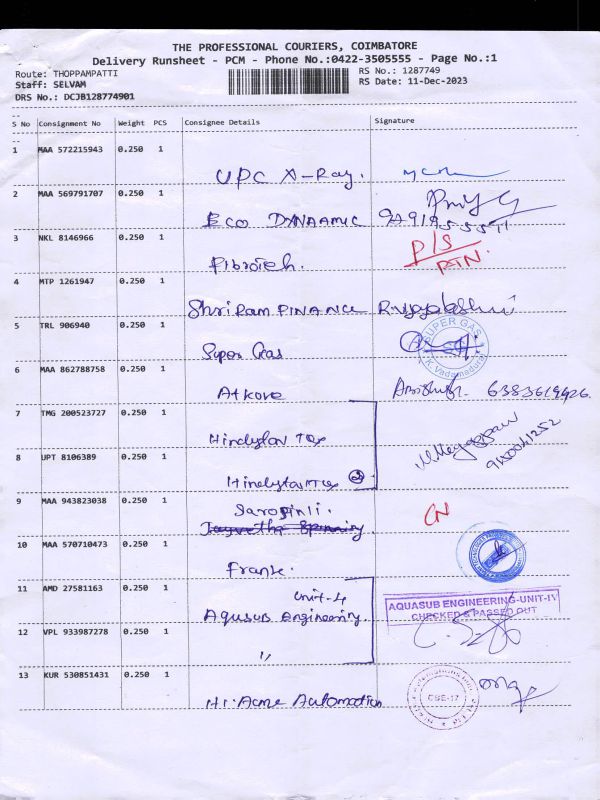 THE PROFESSIONAL COURIERS, COIMBATORE
Delivery Runsheet - PCM - Phone No.:0422-3505555 - Page No.:1
Route: THOPPAMPATTI
Staff: SELVAM
DRS No.: DCJB128774901
RS No.: 1287749
RS Date: 11-Dec-2023
S No Consignment No Weight PCS Consignee Details Signature
1 MAA 572215943 0.250 1
UPC X-Ray.
2 MAA 569791707 0.250 1
ECO DYNAAMIC
3 NKL 8146966 0.250 1 P/S
Fibrotech. PTN.
4 MTP 1261947 0.250 1
Shri Ram FINANCE
5 TRL 906940 0.250 1 SUPER GAS
Super Gas
6 MAA 862788758 0.250 1
Atkore 6383619426.
7 TMG 200523727 0.250 1
Hindustan Tex
8 UPT 8106389 0.250 1
9 MAA 943823038 0.250 1 CN
10 MAA 570710473 0.250 1
Frank.
11 AMD 27581163 0.250 1
Unit-4 AQUASUB ENGINEERING-UNIT-IV
Aqusub Engineering. CHECKED & PASSED OUT
12 VPL 933987278 0.250 1
"
13 KUR 530851431 0.250 1 CBE-17
Hi. Acme Automation